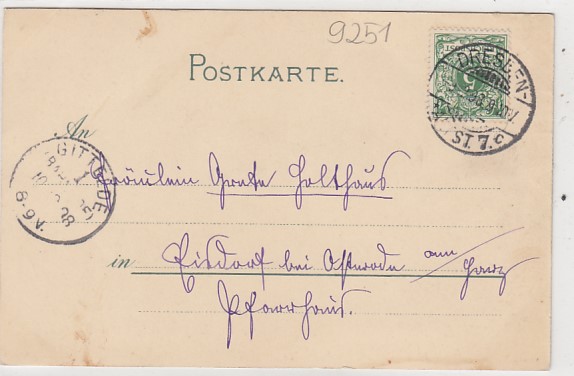 9251
POSTKARTE.
DRESDEN-
ST. 7.c
5
An
GITTELDE
6-9 V.
98
Fräulein Grete Holthaus
in Eisdorf bei Osterode am Harz
Pfarrhaus.